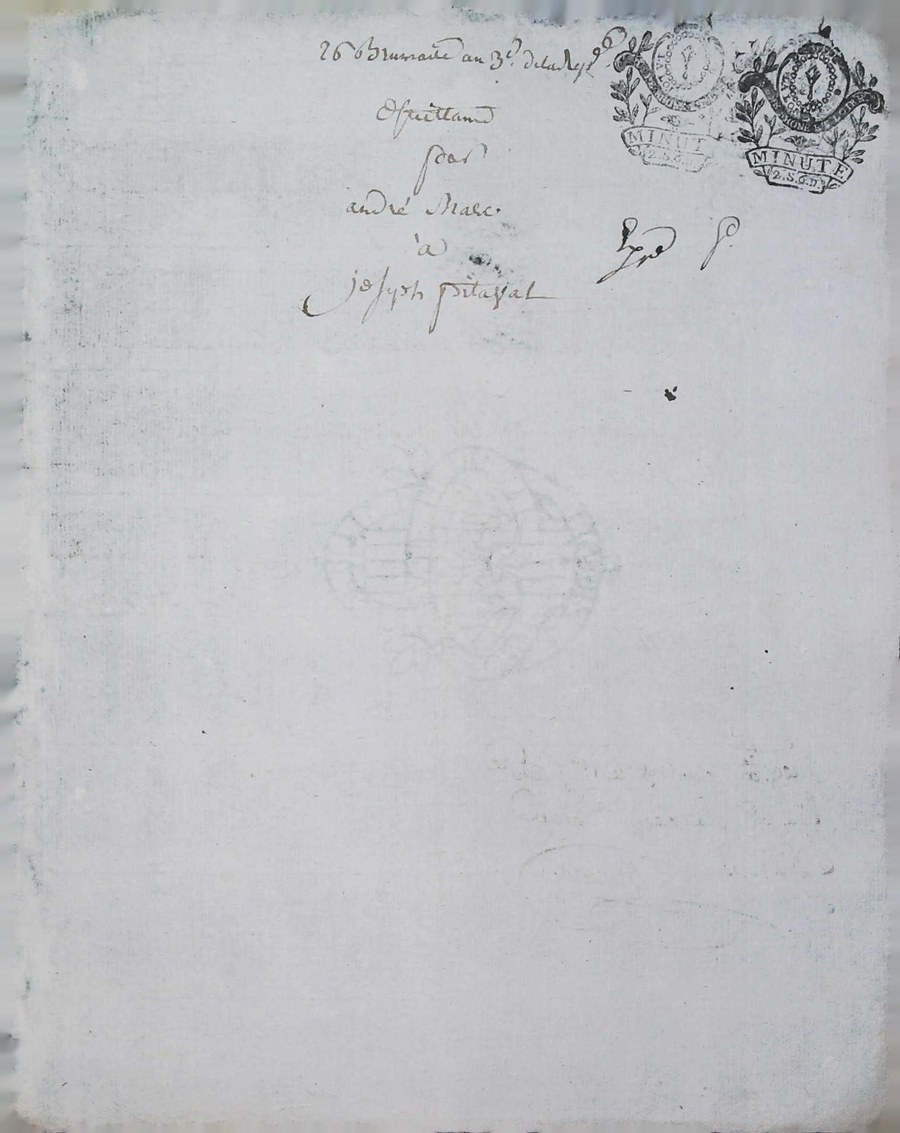 26 Brumaire an 3e. de la Rep.
Quittance
par
andré Marc
à
joseph pitaval
Expé
MINUTE
2.S.6.D
MINUTE
2.S.6.D